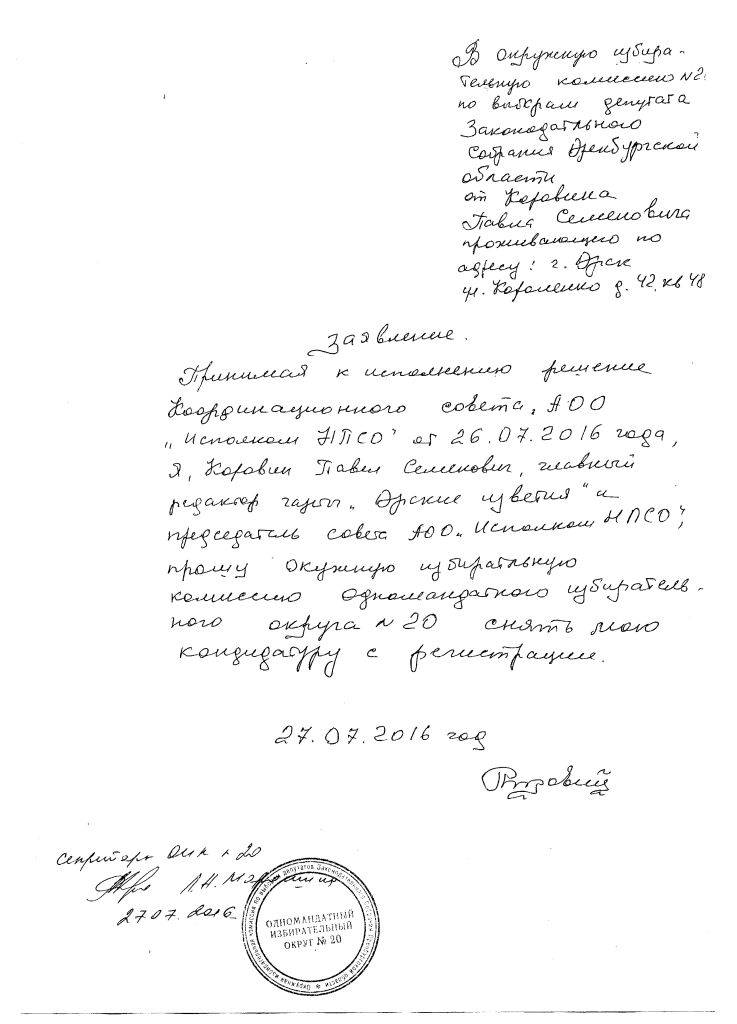 В окружную избира-
тельную комиссию №2
по выборам депутата
Законодатльного
Собрания Оренбургской
области
от Коровина
Павла Семеновича
проживающего по
адресу: г. Орск
ул. Короленко д. 42, кв 48
Заявление.
Принимая к исполнению решение
Координационного совета, АОО
„Исполком НПСО" от 26.07.2016 года,
я, Коровин Павел Семенович, главный
редактор газеты „Орские цветия" и
председатель совета АОО „Исполком НПСО",
прошу Окужную избиратльную
комиссию Одномандатного избиратель-
ного округа №20 снять мою
кандидатуру с регистрации.
27.07.2016 год
Секретарь ОИК №20
Л.Н.
27.07.2016
ОДНОМАНДАТНЫЙ
ИЗБИРАТЕЛЬНЫЙ
ОКРУГ № 20
Окружная избирательная комиссия по выборам депутатов Законодательного Собрания Оренбургской области